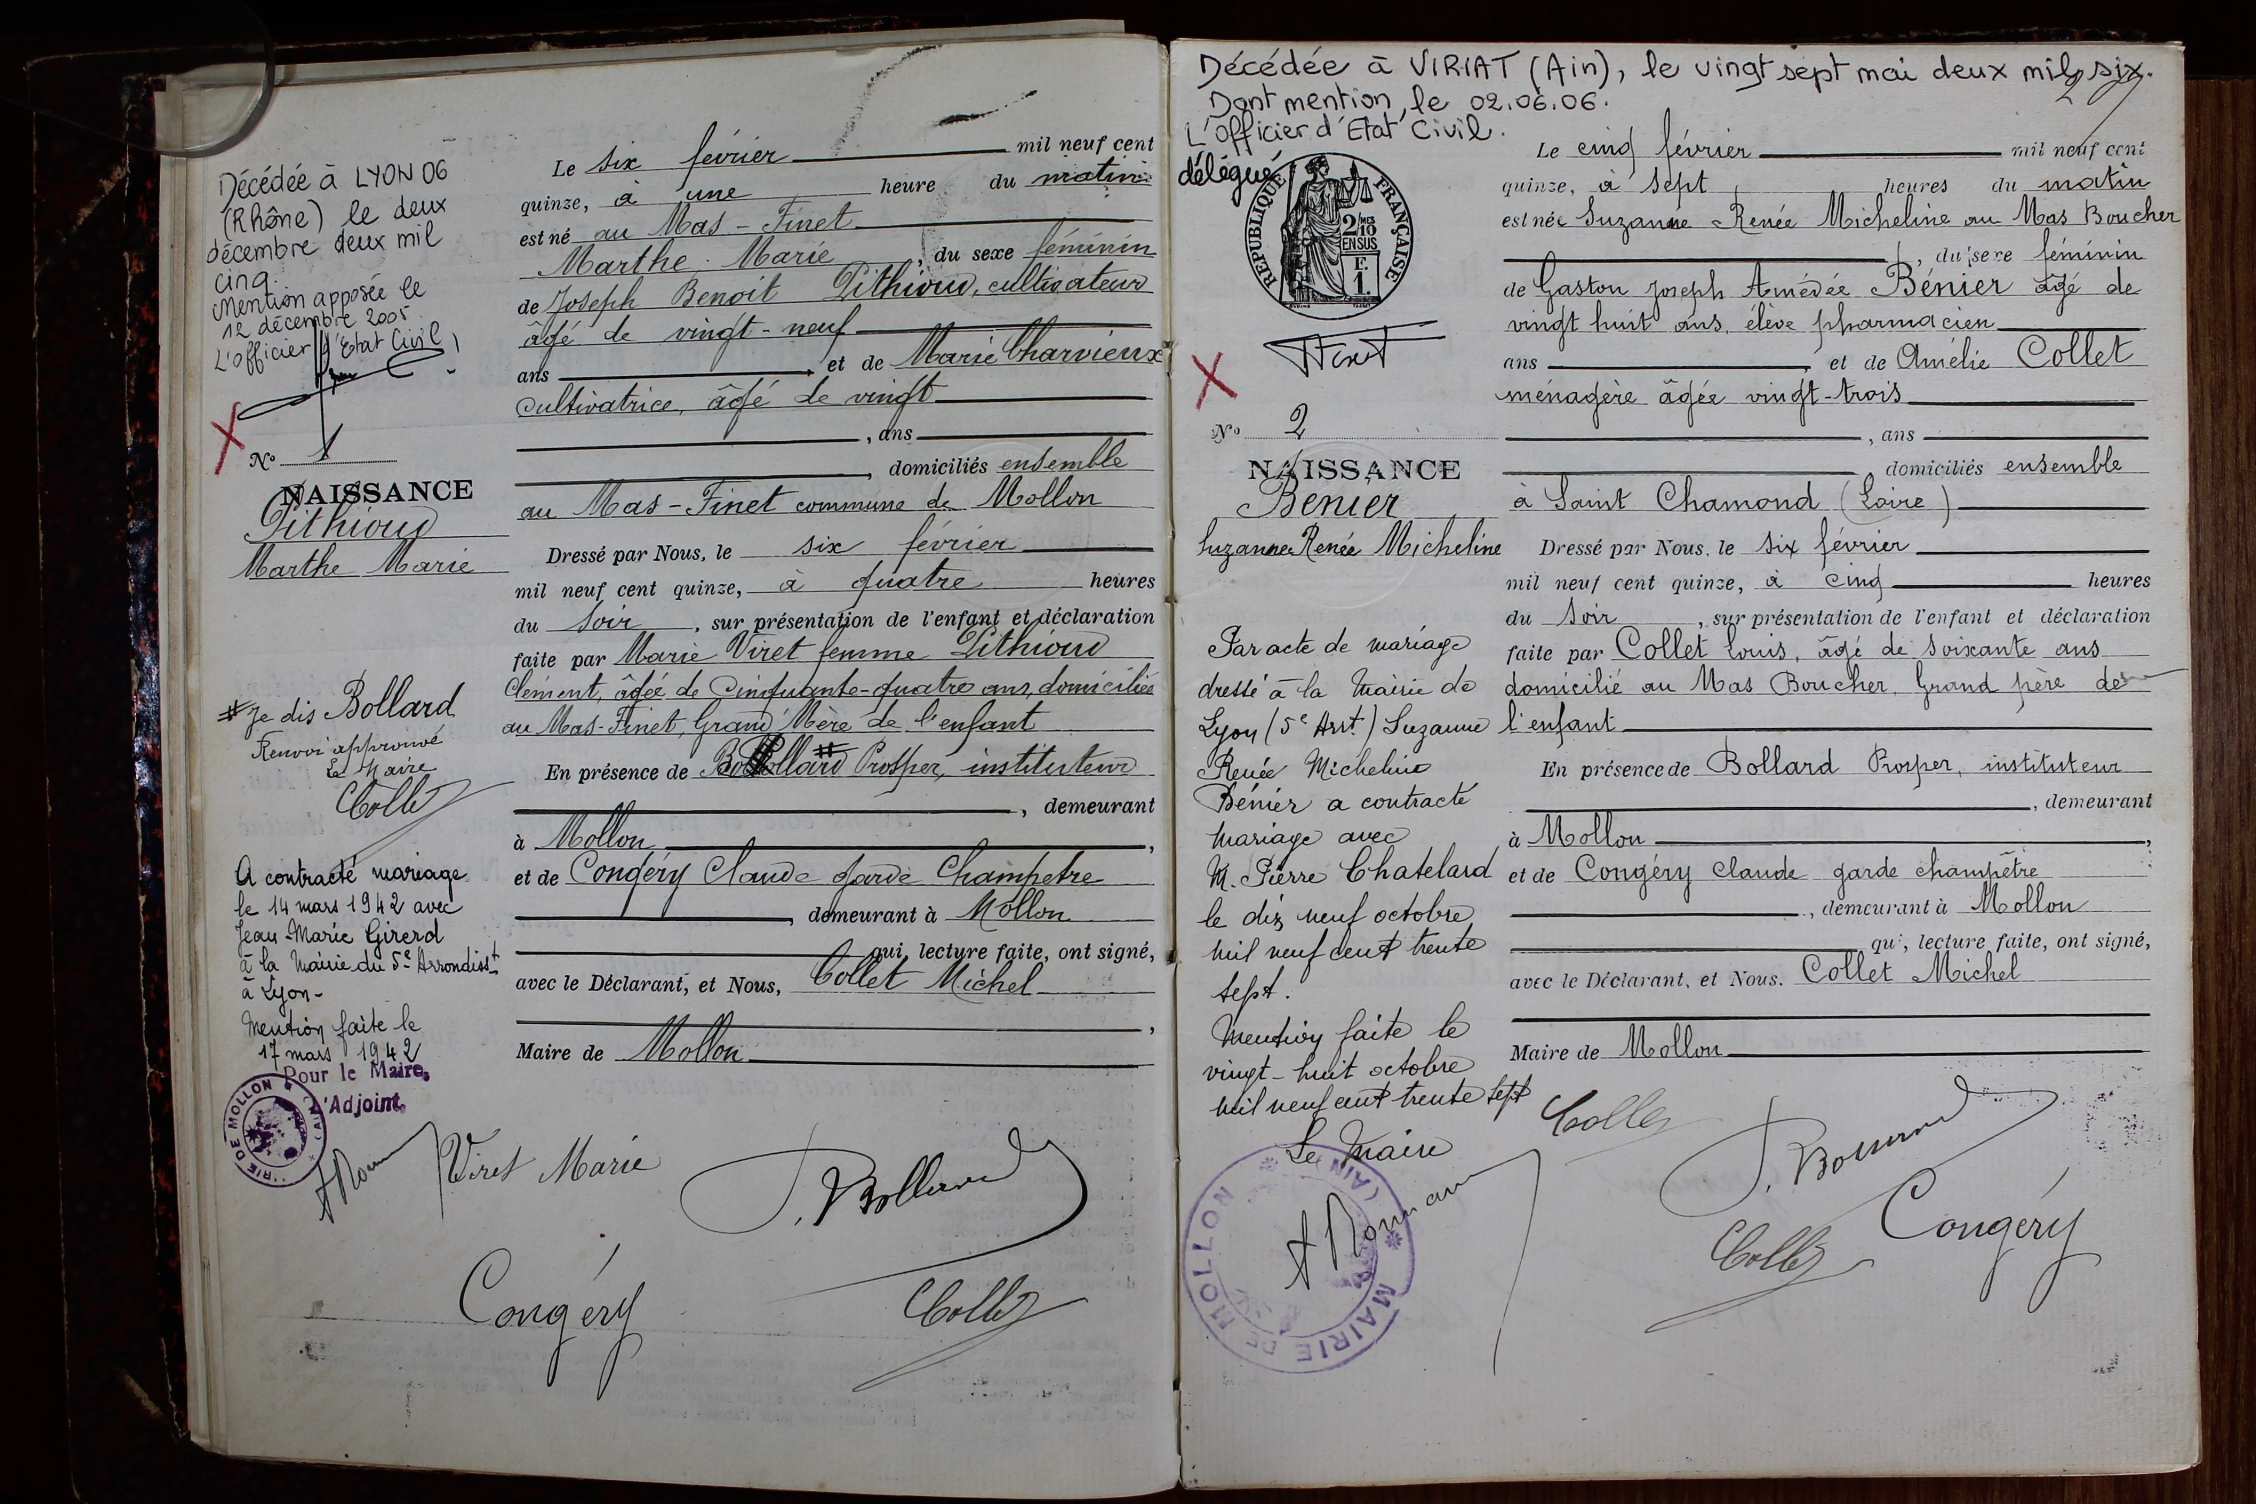 Décédée à LYON 06
(Rhône) le deux
décembre deux mil
cinq.
Mention apposée le
12 décembre 2005
L'officier d'Etat Civil
No 1
NAISSANCE
Pithioud
Marthe Marie
# Je dis Bollard
Renvoi approuvé
Le Maire
Collet
A contracté mariage
le 14 mars 1942 avec
Jean-Marie Girerd
à la Mairie du 5e Arrondisst
à Lyon-
Mention faite le
17 mars 1942
Pour le Maire,
L'Adjoint,
MAIRIE DE MOLLON (AIN)
Le six février mil neuf cent
quinze, à une heure du matin
est né au Mas-Finet
Marthe Marie, du sexe féminin
de Joseph Benoit Pithioud, cultivateur
âgé de vingt-neuf
ans et de Marie Charvieux
cultivatrice, âgé de vingt
, ans
, domiciliés ensemble
au Mas-Finet commune de Mollon
Dressé par Nous, le six février
mil neuf cent quinze, à quatre heures
du soir, sur présentation de l'enfant et déclaration
faite par Marie Viret femme Pithioud
Clément, âgée de Cinquante-quatre ans, domiciliée
au Mas-Finet, Grand'Mère de l'enfant
En présence de Bollard # Prosper, instituteur
, demeurant
à Mollon,
et de Congéry Claude garde Champetre
, demeurant à Mollon
qui, lecture faite, ont signé,
avec le Déclarant, et Nous, Collet Michel
,
Maire de Mollon
Viret Marie
P. Bollard
Congéry
Collet
Décédée à VIRIAT (Ain), le vingt sept mai deux mil six.
Dont mention, le 02.06.06.
L'officier d'Etat Civil.
délégué
2
RÉPUBLIQUE FRANÇAISE
2/10 MES
EN SUS
F.
1.
No 2
NAISSANCE
Bénier
Suzanne Renée Micheline
Par acte de mariage
dressé à la Mairie de
Lyon (5e Arrt.) Suzanne
Renée Micheline
Bénier a contracté
mariage avec
M. Pierre Chatelard
le dix neuf octobre
mil neuf cent trente
sept.
Mention faite le
vingt-huit octobre
mil neuf cent trente sept
Le Maire
MAIRIE DE MOLLON (AIN)
Le cinq février mil neuf cent
quinze, à sept heures du matin
est née Suzanne Renée Micheline au Mas Boucher
, du sexe féminin
de Gaston Joseph Amédée Bénier âgé de
vingt huit ans, élève pharmacien
ans et de Amélie Collet
ménagère âgée vingt-trois
, ans
domiciliés ensemble
à Saint Chamond (Loire)
Dressé par Nous, le six février
mil neuf cent quinze, à cinq heures
du soir, sur présentation de l'enfant et déclaration
faite par Collet Louis, âgé de soixante ans
domicilié au Mas Boucher, Grand père de
l'enfant
En présence de Bollard Prosper, instituteur
, demeurant
à Mollon,
et de Congéry Claude garde champêtre
, demeurant à Mollon
qui, lecture faite, ont signé,
avec le Déclarant, et Nous. Collet Michel
Maire de Mollon
Collet
P. Bollard
Congéry
Collet